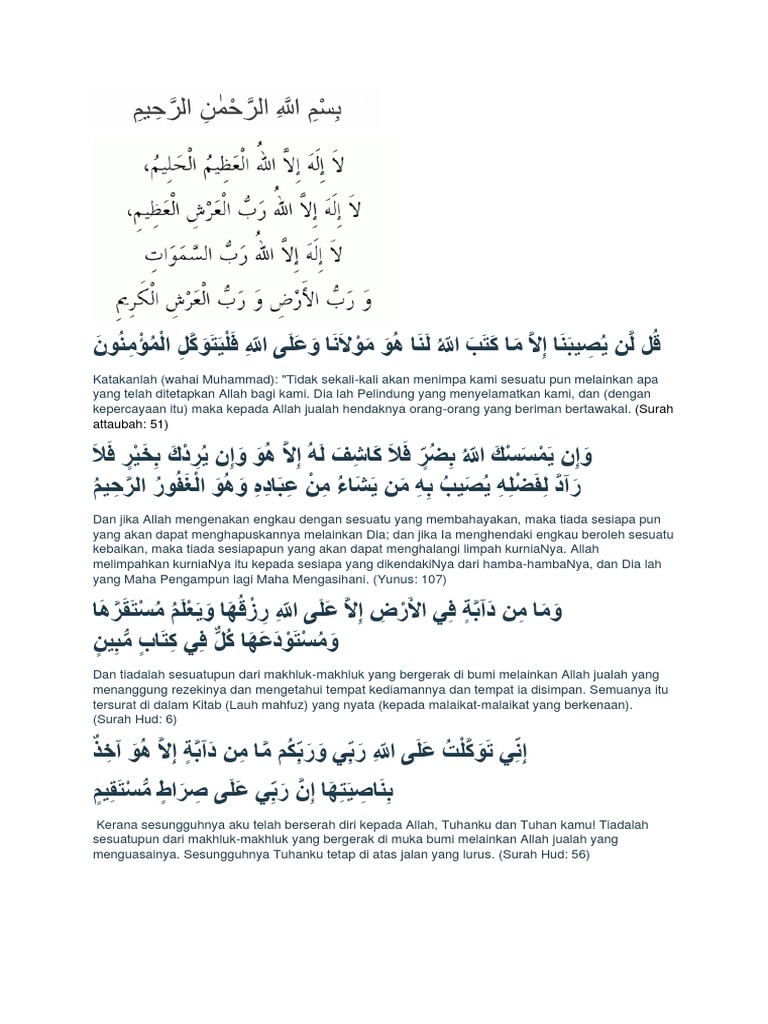 بِسْمِ اللَّهِ الرَّحْمٰنِ الرَّحِيمِ
لاَ إِلَهَ إِلاَّ اللهُ الْعَظِيمُ الْحَلِيمُ،
لاَ إِلَهَ إِلاَّ اللهُ رَبُّ الْعَرْشِ الْعَظِيمِ،
لاَ إِلَهَ إِلاَّ اللهُ رَبُّ السَّمَوَاتِ
وَ رَبُّ الأَرْضِ وَ رَبُّ الْعَرْشِ الْكَرِيمِ
قُل لَّن يُصِيبَنَا إِلاَّ مَا كَتَبَ اللّهُ لَنَا هُوَ مَوْلاَنَا وَعَلَى اللّهِ فَلْيَتَوَكَّلِ الْمُؤْمِنُونَ
Katakanlah (wahai Muhammad): "Tidak sekali-kali akan menimpa kami sesuatu pun melainkan apa
yang telah ditetapkan Allah bagi kami. Dia lah Pelindung yang menyelamatkan kami, dan (dengan
kepercayaan itu) maka kepada Allah jualah hendaknya orang-orang yang beriman bertawakal. (Surah
attaubah: 51)
وَإِن يَمْسَسْكَ اللّهُ بِضُرٍّ فَلاَ كَاشِفَ لَهُ إِلاَّ هُوَ وَإِن يُرِدْكَ بِخَيْرٍ فَلاَ
رَآدَّ لِفَضْلِهِ يُصَيبُ بِهِ مَن يَشَاءُ مِنْ عِبَادِهِ وَهُوَ الْغَفُورُ الرَّحِيمُ
Dan jika Allah mengenakan engkau dengan sesuatu yang membahayakan, maka tiada sesiapa pun
yang akan dapat menghapuskannya melainkan Dia; dan jika Ia menghendaki engkau beroleh sesuatu
kebaikan, maka tiada sesiapapun yang akan dapat menghalangi limpah kurniaNya. Allah
melimpahkan kurniaNya itu kepada sesiapa yang dikendakiNya dari hamba-hambaNya, dan Dia lah
yang Maha Pengampun lagi Maha Mengasihani. (Yunus: 107)
وَمَا مِن دَآبَّةٍ فِي الأَرْضِ إِلاَّ عَلَى اللّهِ رِزْقُهَا وَيَعْلَمُ مُسْتَقَرَّهَا
وَمُسْتَوْدَعَهَا كُلٌّ فِي كِتَابٍ مُّبِينٍ
Dan tiadalah sesuatupun dari makhluk-makhluk yang bergerak di bumi melainkan Allah jualah yang
menanggung rezekinya dan mengetahui tempat kediamannya dan tempat ia disimpan. Semuanya itu
tersurat di dalam Kitab (Lauh mahfuz) yang nyata (kepada malaikat-malaikat yang berkenaan).
(Surah Hud: 6)
إِنِّي تَوَكَّلْتُ عَلَى اللّهِ رَبِّي وَرَبِّكُم مَّا مِن دَآبَّةٍ إِلاَّ هُوَ آخِذٌ
بِنَاصِيَتِهَا إِنَّ رَبِّي عَلَى صِرَاطٍ مُّسْتَقِيمٍ
Kerana sesungguhnya aku telah berserah diri kepada Allah, Tuhanku dan Tuhan kamu! Tiadalah
sesuatupun dari makhluk-makhluk yang bergerak di muka bumi melainkan Allah jualah yang
menguasainya. Sesungguhnya Tuhanku tetap di atas jalan yang lurus. (Surah Hud: 56)